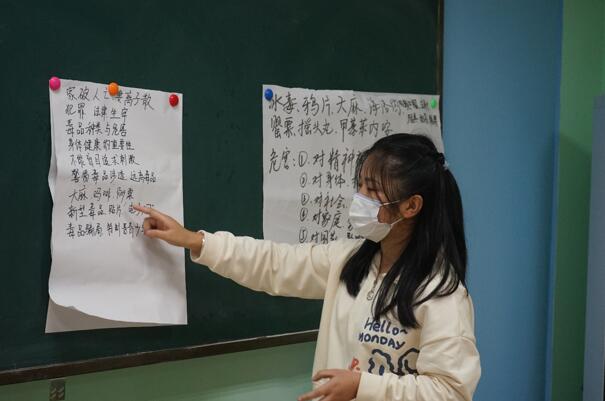 家破人亡 妻离子散
犯罪 法律 生守
毒品种类与危害
身体健康的重要性
不能盲目追求刺激
警惕毒品渗透,远离毒品
大麻 吗啡 罂粟
新型毒品 贴片
毒品骗局
冰毒、鸦片、大麻、海洛因
罂粟、摇头丸、甲基苯丙
危害:①、对精神
②、对身体
③、对社会
④、对家庭
⑤、对国
Hello
MONDAY